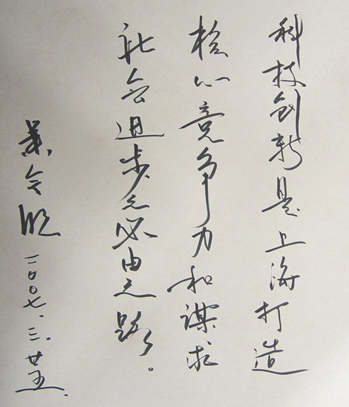 科技创新是上海打造
核心竞争力和谋求
社会进步之必由之路。
叶令
二〇〇七.三.廿五.